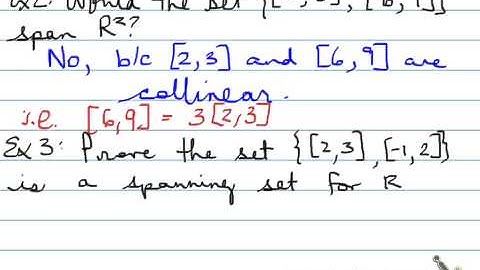 Ex2: Would the set
span R²?
No, b/c [2,3] and [6,9] are
collinear.
i.e. [6,9] = 3[2,3]
Ex3: Prove the set {[2,3],[-1,2]}
is a spanning set for R